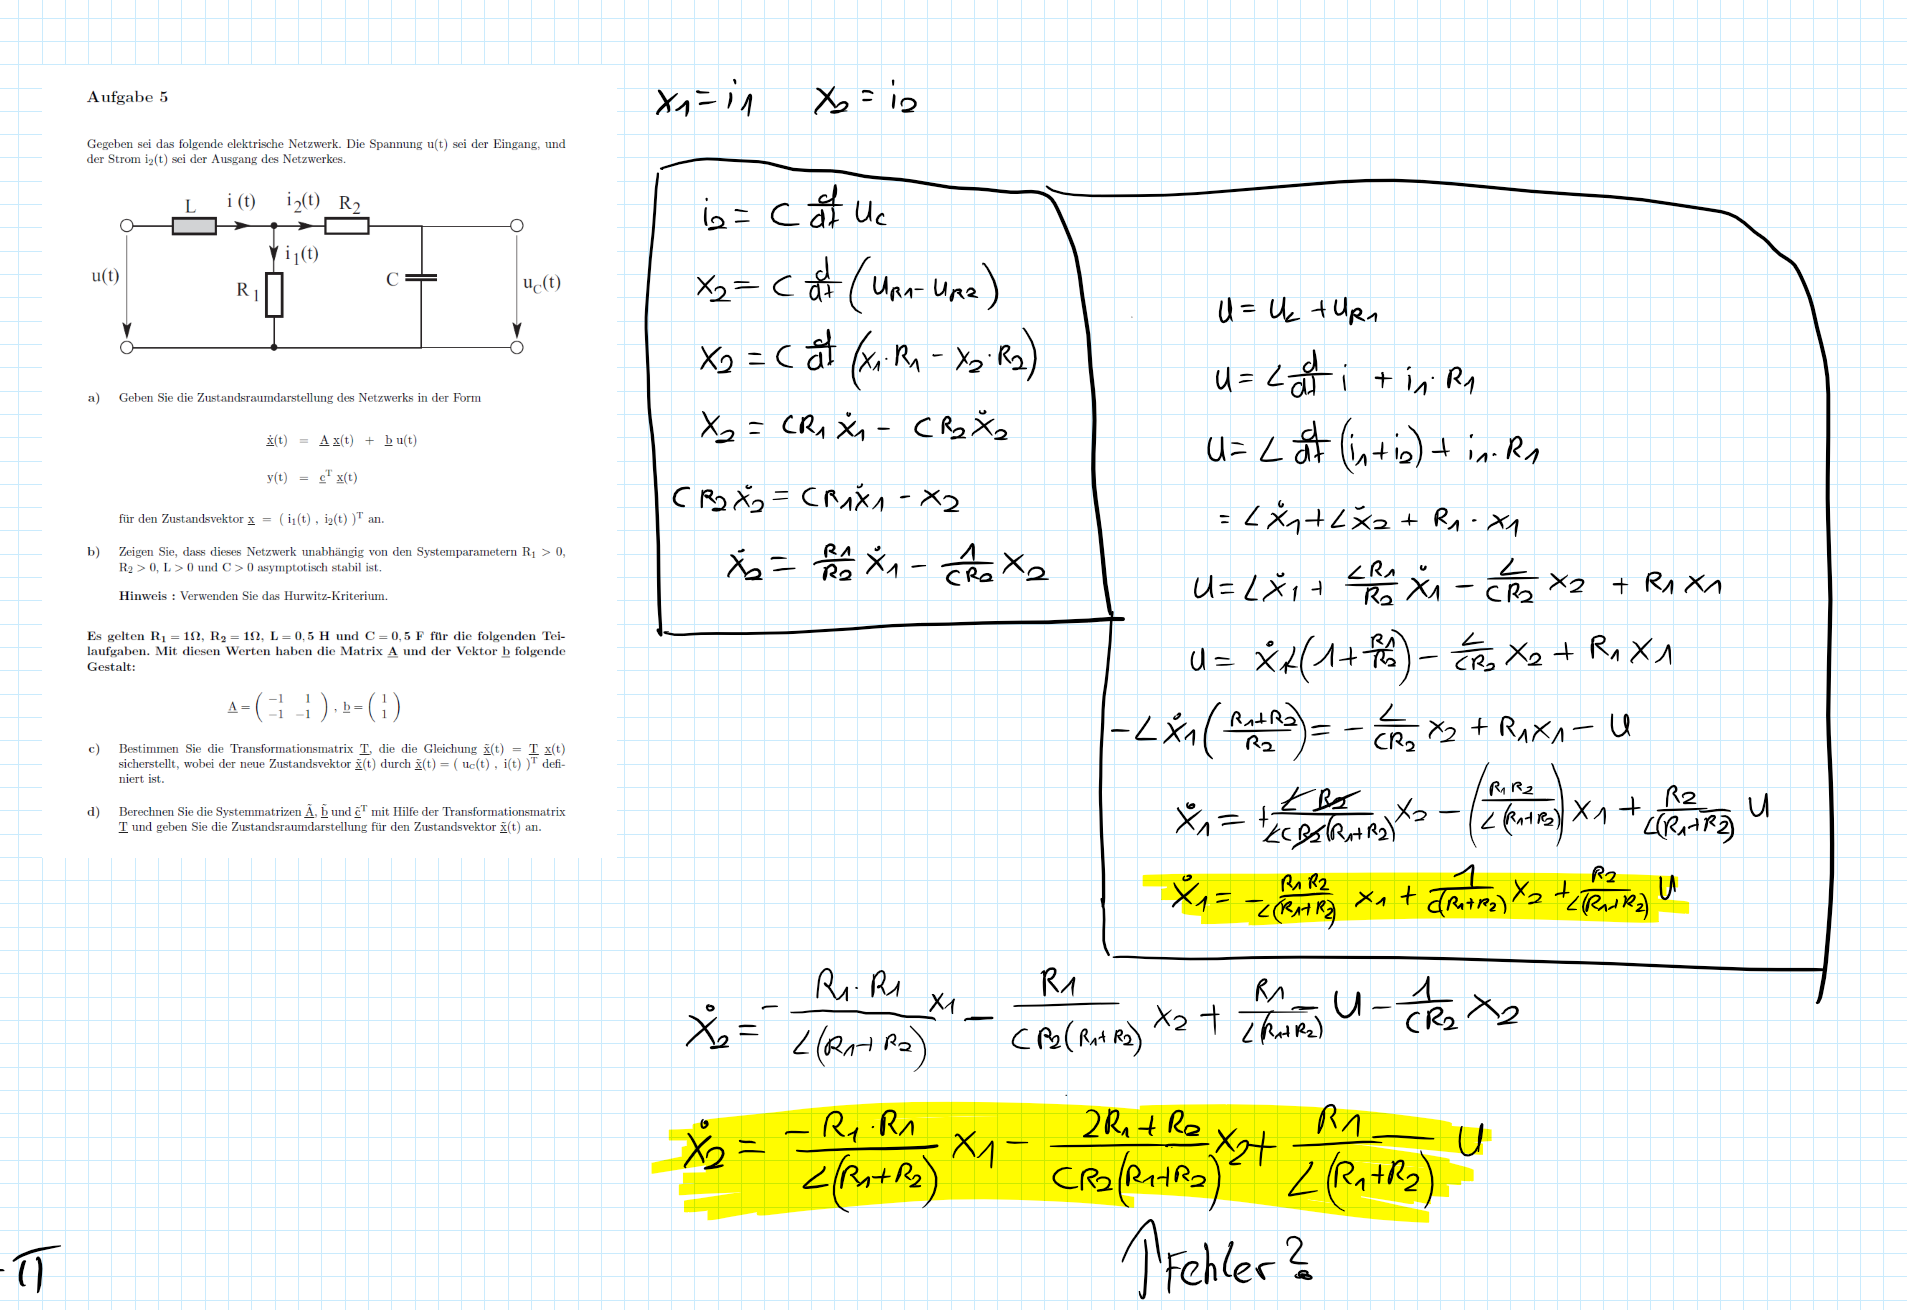 Aufgabe 5
Gegeben sei das folgende elektrische Netzwerk. Die Spannung u(t) sei der Eingang, und
der Strom i₂(t) sei der Ausgang des Netzwerkes.
L i (t) i₂(t) R₂
i₁(t)
u(t) R₁ C u_C(t)
a) Geben Sie die Zustandsraumdarstellung des Netzwerks in der Form
ẋ(t) = A x(t) + b u(t)
y(t) = cᵀ x(t)
für den Zustandsvektor x = ( i₁(t) , i₂(t) )ᵀ an.
b) Zeigen Sie, dass dieses Netzwerk unabhängig von den Systemparametern R₁ > 0,
R₂ > 0, L > 0 und C > 0 asymptotisch stabil ist.
Hinweis : Verwenden Sie das Hurwitz-Kriterium.
Es gelten R₁ = 1Ω, R₂ = 1Ω, L = 0,5 H und C = 0,5 F für die folgenden Tei-
laufgaben. Mit diesen Werten haben die Matrix A und der Vektor b folgende
Gestalt:
A = ( −1 1 ; −1 −1 ) , b = ( 1 ; 1 )
c) Bestimmen Sie die Transformationsmatrix T, die die Gleichung x̃(t) = T x(t)
sicherstellt, wobei der neue Zustandsvektor x̃(t) durch x̃(t) = ( u_C(t) , i(t) )ᵀ defi-
niert ist.
d) Berechnen Sie die Systemmatrizen Ã, b̃ und c̃ᵀ mit Hilfe der Transformationsmatrix
T und geben Sie die Zustandsraumdarstellung für den Zustandsvektor x̃(t) an.
x₁ = i₁ x₂ = i₂
i₂ = C d/dt u_C
x₂ = C d/dt (u_R1 − u_R2)
x₂ = C d/dt (x₁·R₁ − x₂·R₂)
x₂ = CR₁ẋ₁ − CR₂ẋ₂
CR₂ẋ₂ = CR₁ẋ₁ − x₂
ẋ₂ = R₁/R₂ ẋ₁ − 1/(CR₂) x₂
u = u_L + u_R1
u = L d/dt i + i₁·R₁
u = L d/dt (i₁+i₂) + i₁·R₁
= Lẋ₁ + Lẋ₂ + R₁·x₁
u = Lẋ₁ + LR₁/R₂ ẋ₁ − L/(CR₂) x₂ + R₁x₁
u = ẋ₁L(1 + R₁/R₂) − L/(CR₂) x₂ + R₁x₁
−Lẋ₁((R₁+R₂)/R₂) = − L/(CR₂) x₂ + R₁x₁ − u
ẋ₁ = + LR₂/(LCR₂(R₁+R₂)) x₂ − (R₁R₂/(L(R₁+R₂))) x₁ + R₂/(L(R₁+R₂)) u
ẋ₁ = − R₁R₂/(L(R₁+R₂)) x₁ + 1/(C(R₁+R₂)) x₂ + R₂/(L(R₁+R₂)) u
ẋ₂ = − R₁·R₁/(L(R₁+R₂)) x₁ − R₁/(CR₂(R₁+R₂)) x₂ + R₁/(L(R₁+R₂)) u − 1/(CR₂) x₂
ẋ₂ = −R₁·R₁/(L(R₁+R₂)) x₁ − (2R₁+R₂)/(CR₂(R₁+R₂)) x₂ + R₁/(L(R₁+R₂)) u
↑ Fehler?